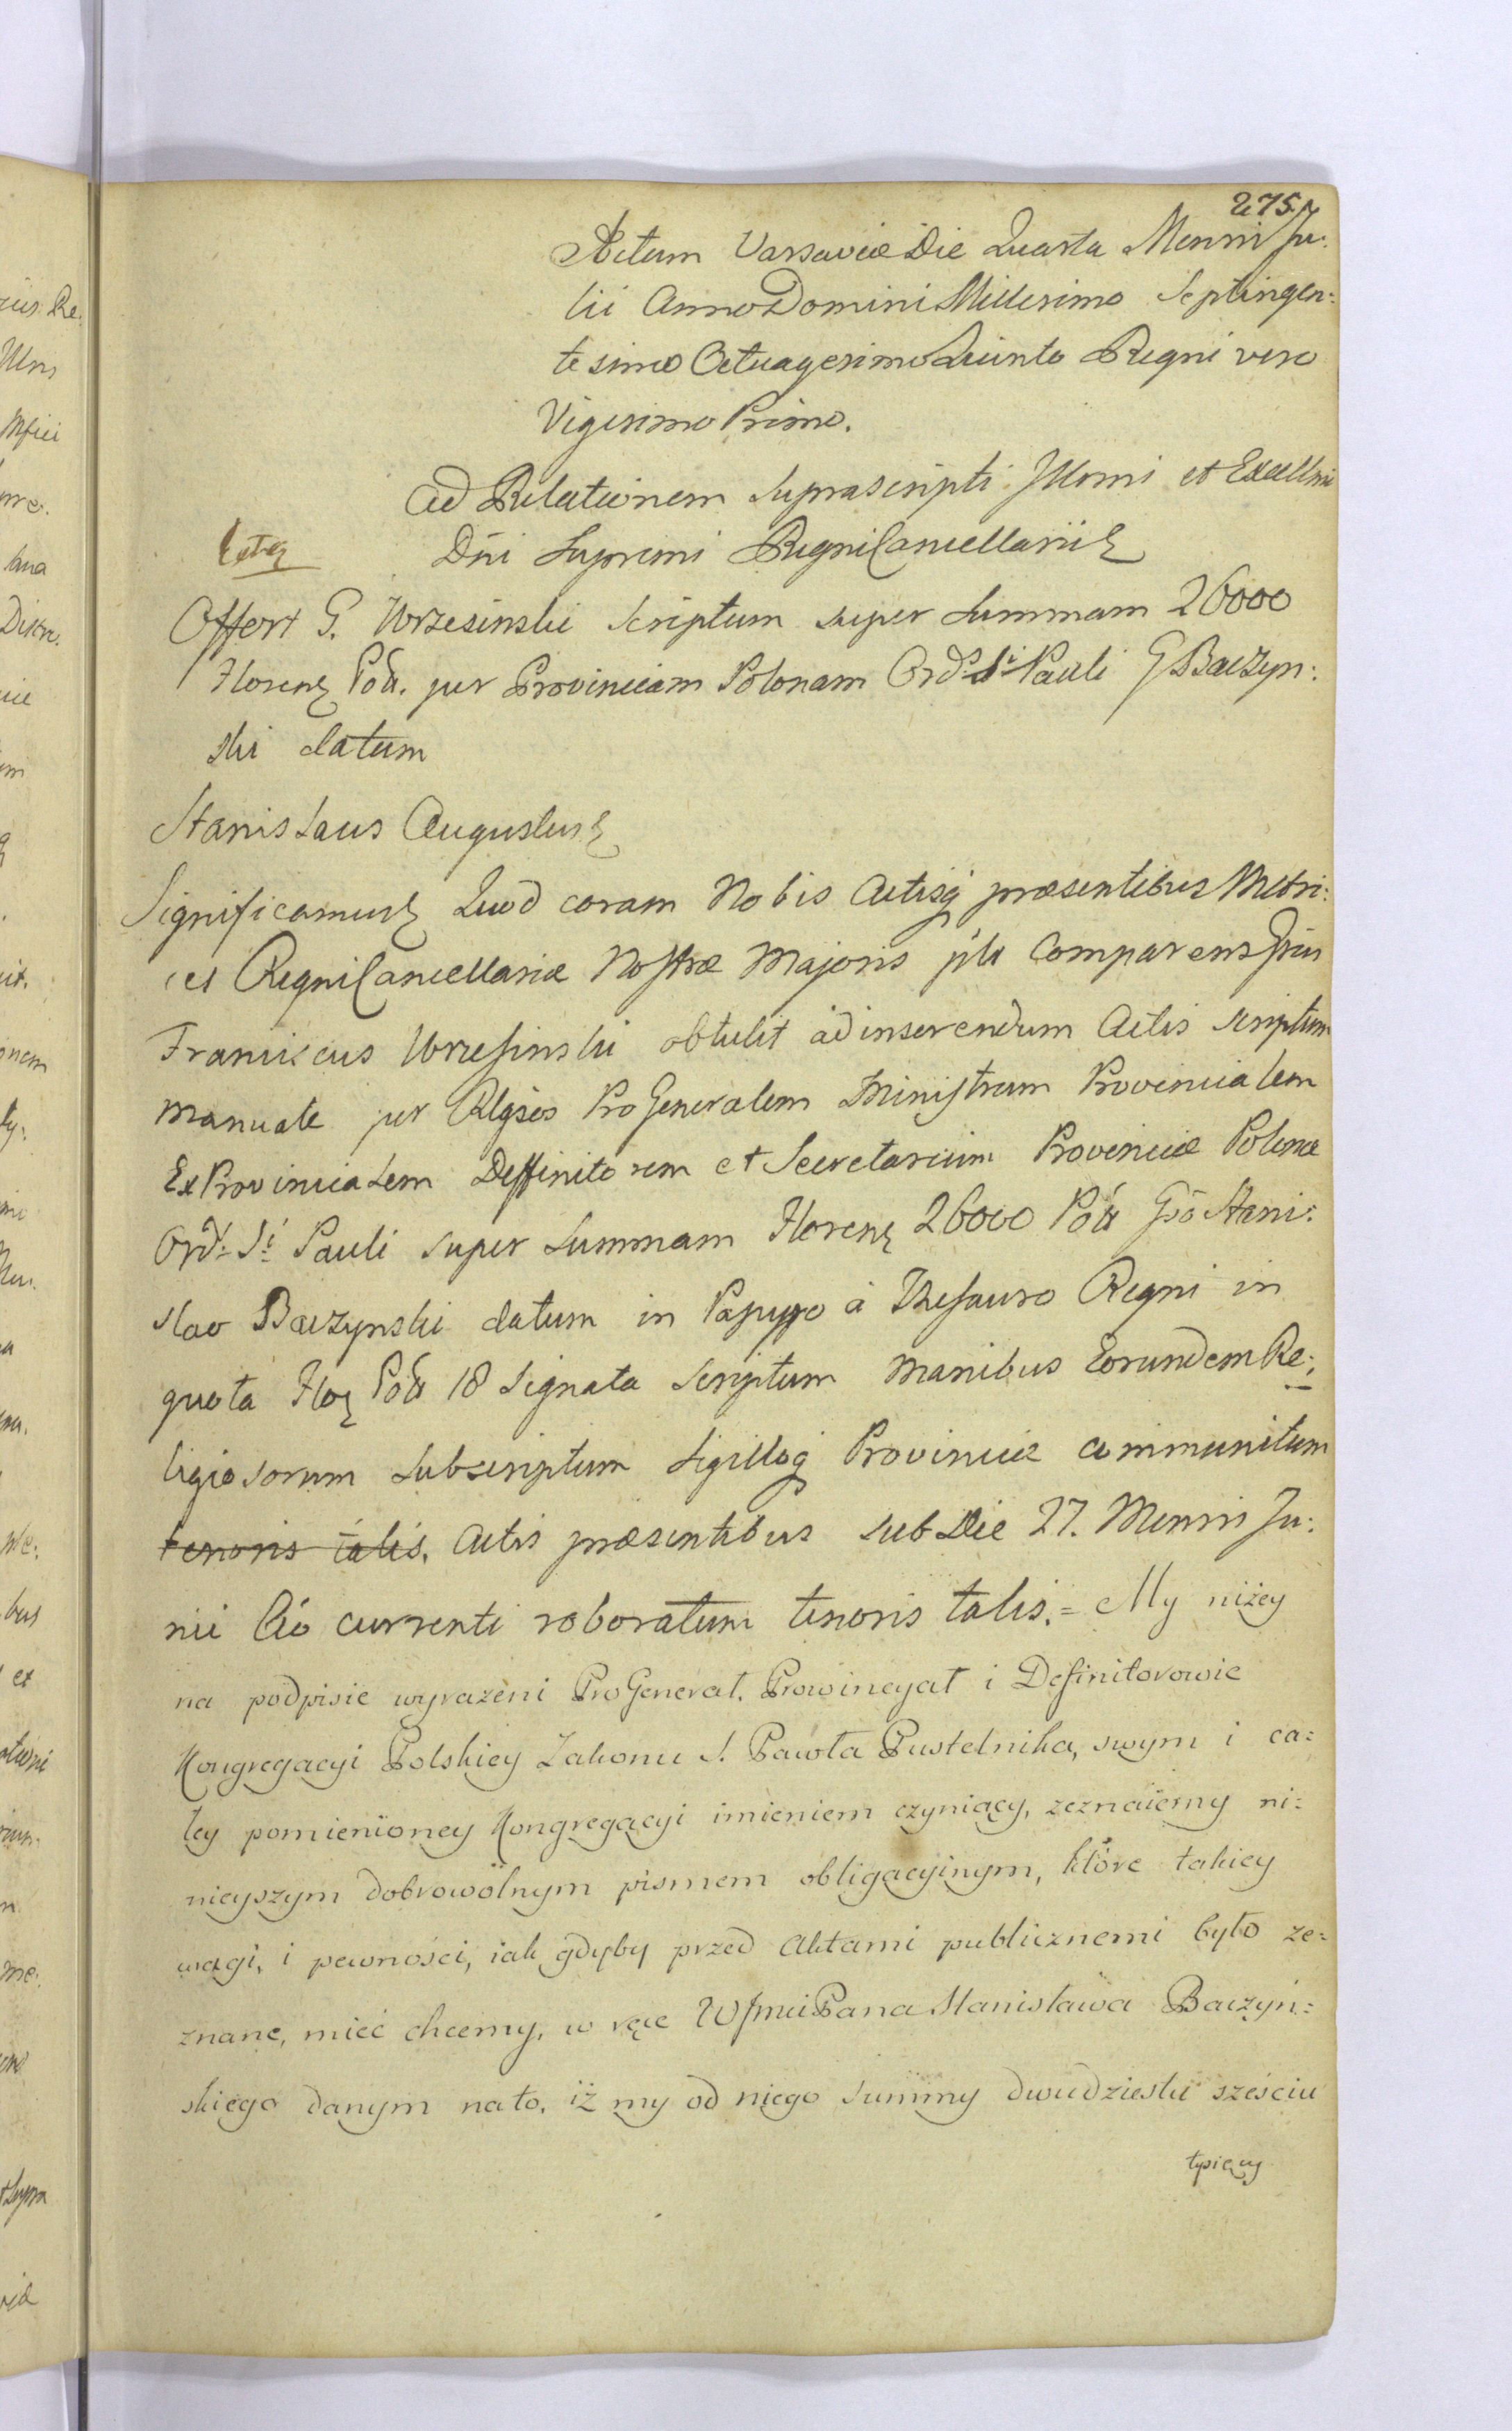 275.
Actum Varsaviæ Die Quarta Mensis Ju:
lii Anno Domini Millesimo Septingen:
tesimo Octuagesimo Quinto Regni vero
Vigesimo Primo.
Ad Relationem suprascripti Illmi et Excellmi
Dñi Supremi Regni Cancellarii
Offert G. Wrzesinski scriptum super Summam 26000
Floren Pol. per Provinciam Polonam Ord. Si Pauli G Baczyn:
ski datum
Stanislaus Augustus
Significamus Quod coram Nobis Actisq præsentibus Metri:
ces Regni Cancellariæ Nostræ Majoris plr Comparens Grsus
Franciscus Wrzesinski obtulit ad inserendum Actis scriptum
manuale per Rlgsos ProGeneralem Ministrum Provincialem
ExProvincialem Deffinitorem et Secretarium Provinciæ Polonæ
Ord: Si Pauli super Summam Floren 26000 Pol Gso Stani:
slao Baczynski datum in Papyro à Thesauro Regni in
quota Flor Pol 18 signata scriptum Manibus Eorundem Re:
ligiosorum subscriptum Sigilloq Provinciæ communitum
tenoris talis. Actis præsentibus sub Die 27. Mensis Ju:
nii Ao currenti roboratum tenoris talis. = My niżey
na podpisie wyrażeni ProGenerał. Prowincyał i Definitorowie
Kongregacyi Polskiey Zakonu S. Pawła Pustelnika, swym i ca:
łey pomienioney Kongregacyi imieniem czyniący, zeznaiemy ni:
nieyszym dobrowolnym pismem obligacyinym, które takiey
wagi, i pewności, iak gdyby przed Aktami publicznemi było ze:
znane, mieć chcemy, w ręce WJmci Pana Stanisława Baczyń:
skiego danym na to, iż my od niego summy dwudziestu sześciu
tysięcy